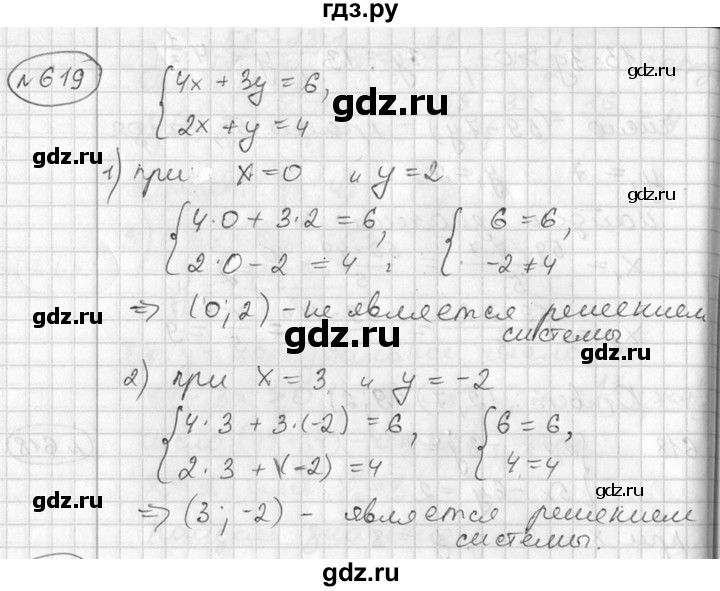 гдз.ру
№619
{4x + 3y = 6,
2x + y = 4
gdz.ru
gdz.ru
gdz.ru
1) при x = 0 и y = 2
gdz.ru
{4·0 + 3·2 = 6, {6 = 6,
2·0 - 2 = 4 ; -2 ≠ 4
=> (0; 2) - не является решением
системы
gdz.ru
gdz.ru
gdz.ru
2) при x = 3 и y = -2
{4·3 + 3·(-2) = 6, {6 = 6,
2·3 + (-2) = 4 4 = 4
gdz.ru
gdz.ru
=> (3; -2) - является решением
системы.
gdz.ru
gdz.ru